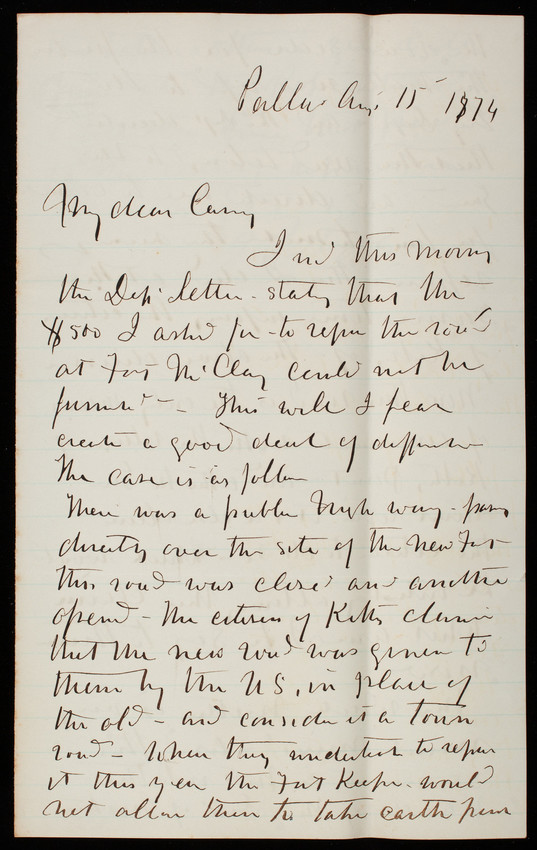 Portland Aug 15 1874
My dear Casey
I rec'd this morng
the Dept letter - stating that the
$500 I asked for - to repair the road
at Fort McClary could not be
furnished - This will I fear
create a good deal of difference
The case is as follows
There was a public high way - passing
directly over the site of the new Fort
this road was closed and another
opened - The citizens of Kittery claim
that the new road was given to
them by the US, in place of
the old - and consider it a town
road - When they undertook to repair
it this year the Fort Keeper would
not allow them to take earth from